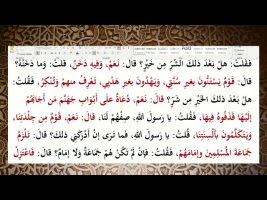 فقلتُ: هلْ بعدَ ذلكَ الشَّرِّ مِن خَيْرٍ؟ قالَ: نَعَمْ، وفيهِ دَخَنٌ، قلتُ: وَما دَخَنُهُ؟
قالَ: قَوْمٌ يَسْتَنُّونَ بغيرِ سُنَّتي، ويَهْدُونَ بغيرِ هَدْيِي، تَعْرِفُ منهمْ وتُنْكِرُ، فقُلتُ:
هلْ بعدَ ذلكَ الخَيْرِ مِن شَرٍّ؟ قالَ: نَعَمْ، دُعَاةٌ علَى أَبْوَابِ جَهَنَّمَ مَن أَجَابَهُمْ
إلَيْهَا قَذَفُوهُ فِيهَا، فَقُلتُ: يا رَسولَ اللهِ، صِفْهُمْ لَنَا، قالَ: نَعَمْ، قَوْمٌ مِن جِلْدَتِنَا،
ويَتَكَلَّمُونَ بأَلْسِنَتِنَا، قُلتُ: يا رَسولَ اللهِ، فَما تَرَى إنْ أَدْرَكَنِي ذلكَ؟ قالَ: تَلْزَمُ
جَمَاعَةَ المُسْلِمِينَ وإمَامَهُمْ، فَقُلتُ: فإنْ لَمْ تَكُنْ لهمْ جَمَاعَةٌ وَلَا إمَامٌ؟ قالَ: فَاعْتَزِلْ